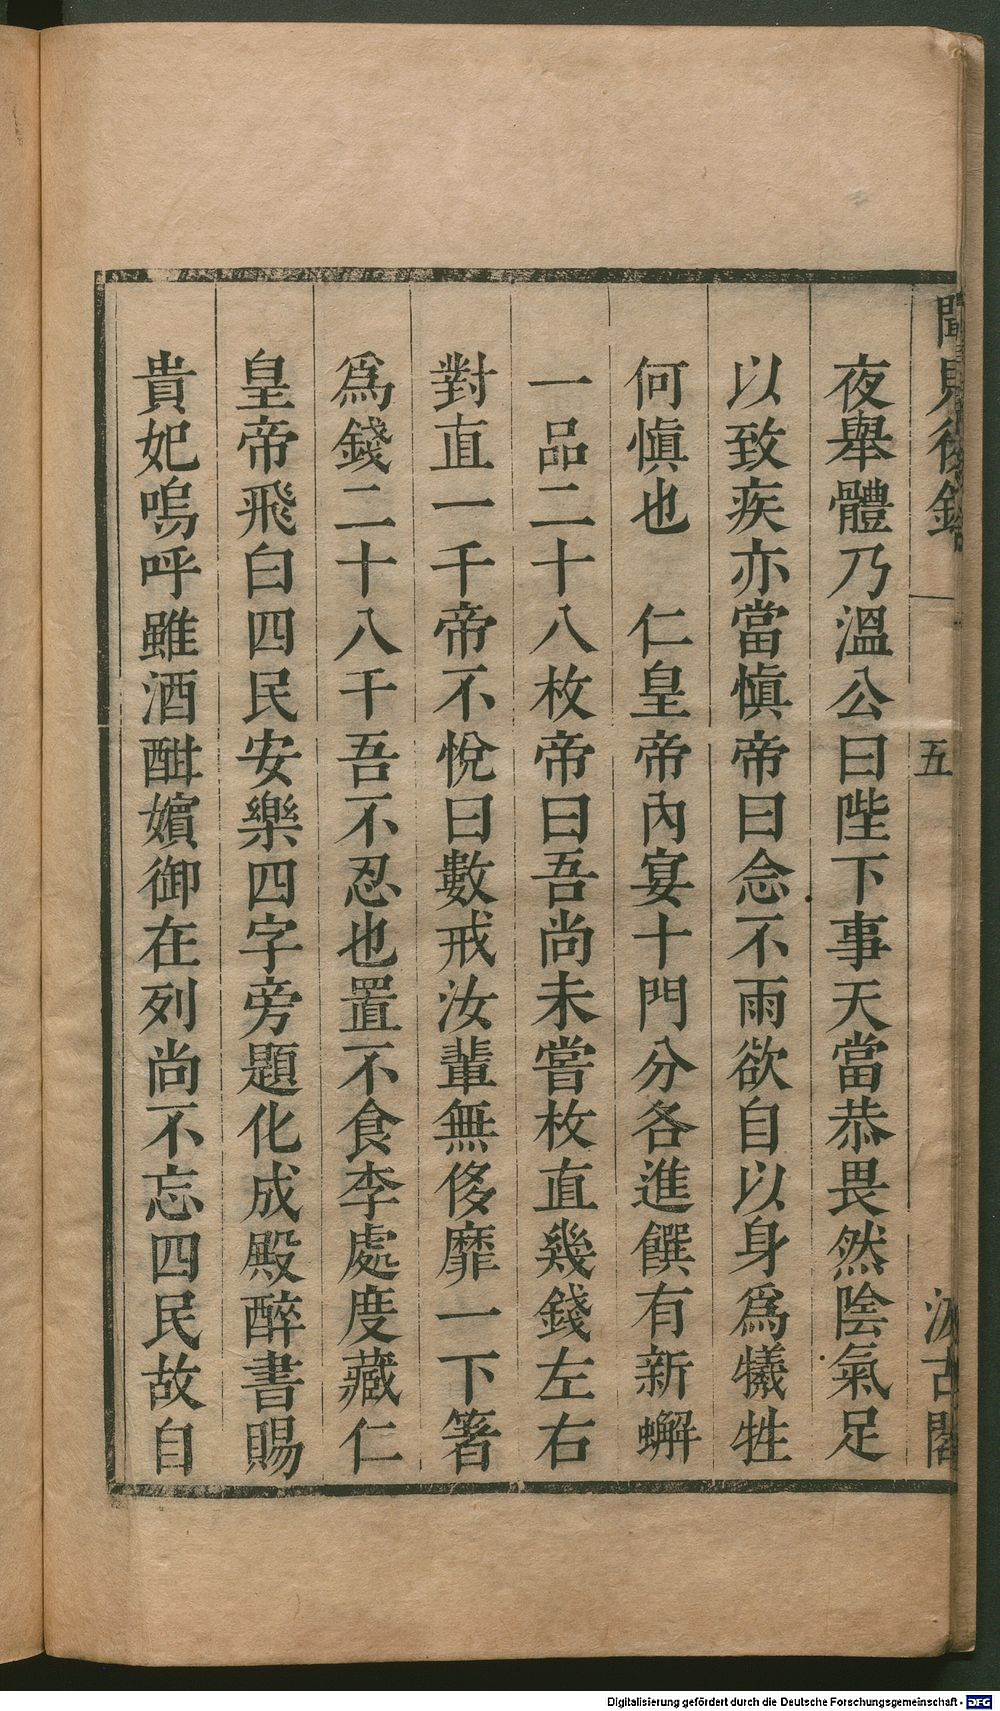 聞見後錄 一 五 汲古閣
夜舉體乃溫公曰陛下事天當恭畏然陰氣足
以致疾亦當愼帝曰念不雨欲自以身爲犧牲
何愼也 仁皇帝內宴十門分各進饌有新蠏
一品二十八枚帝曰吾尚未嘗枚直幾錢左右
對直一千帝不悅曰數戒汝輩無侈靡一下箸
爲錢二十八千吾不忍也置不食李處度藏仁
皇帝飛白四民安樂四字旁題化成殿醉書賜
貴妃嗚呼雖酒酣嬪御在列尚不忘四民故自
Digitalisierung gefördert durch die Deutsche Forschungsgemeinschaft - DFG